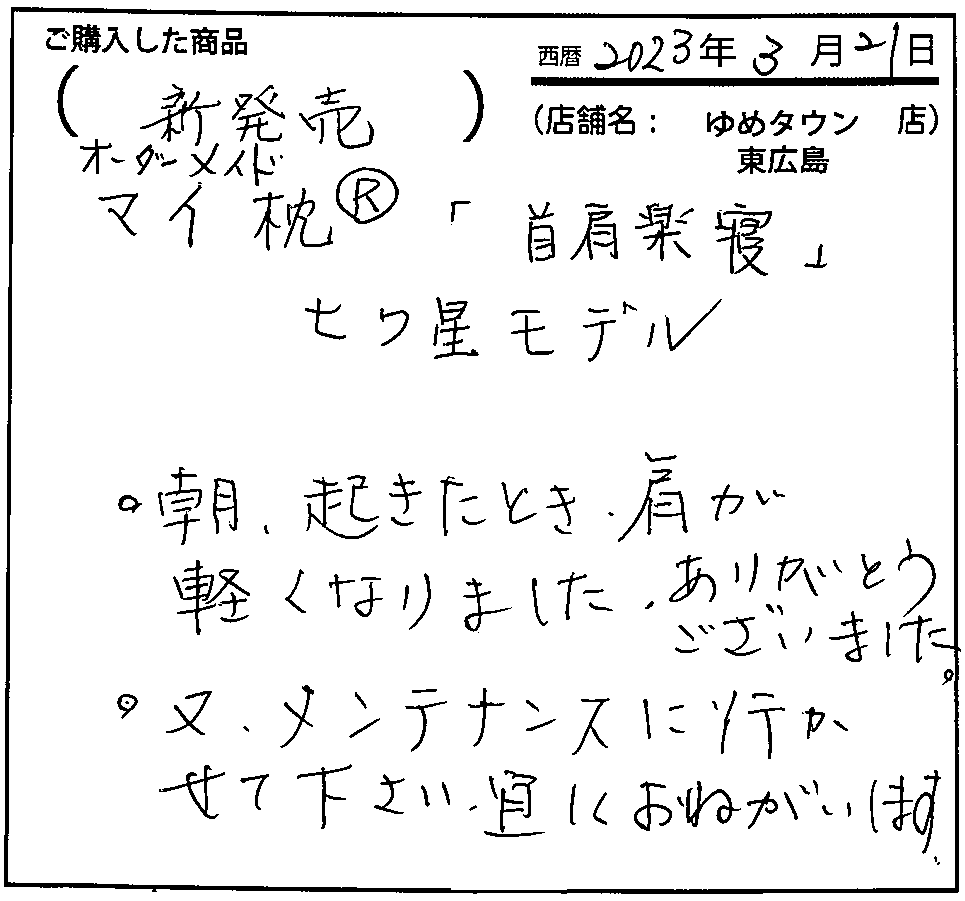 ご購入した商品
西暦 2023年 3 月 21日
( 新発売 )
(店舗名: ゆめタウン 店)
東広島
オーダーメイド
マイ枕®「首肩楽寝」
七ツ星モデル
。朝、起きたとき、肩が
軽くなりました、ありがとう
ございました。
。又、メンテナンスに行か
せて下さい、宜しくおねがいします。